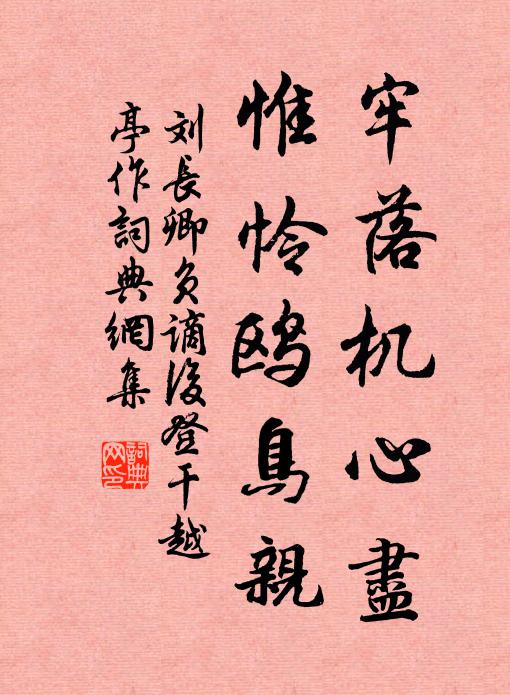 牢落机心盡
惟怜鸥鳥親
刘長卿负谪後登干越
亭作詞典網集
詞典
网印